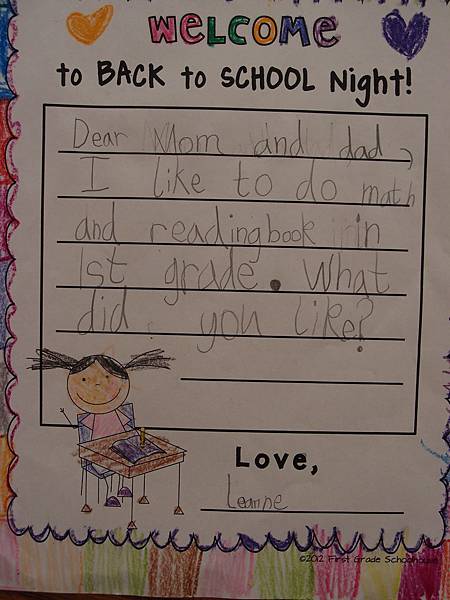 WELCOME
to BACK to SCHOOL Night!
Dear Mom and dad,
I like to do math
and reading book in
1st grade. What
did you like?
Love,
Leanne
©2012 First Grade Schoolhouse